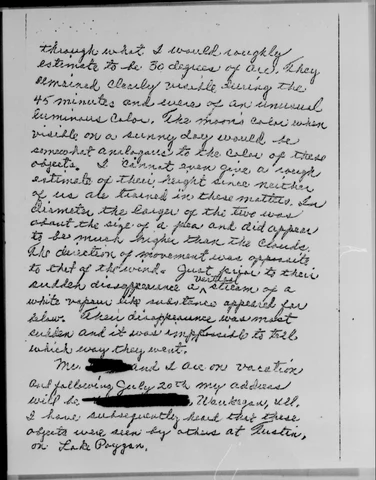 through what I would roughly
estimate to be 30 degrees of arc. They
remained clearly visible during the
45 minutes and were of an unusual
luminous color. The moon's color when
visible on a sunny day would be
somewhat analogous to the color of these
objects. I cannot even give a rough
estimate of their height since neither
of us are trained in these matters. In
diameter the larger of the two was
about the size of a pea and did appear
to be much higher than the clouds.
The direction of movement was opposite
to that of the wind. Just prior to their
sudden disappearance a vertical stream of a
white vapour like substance appeared far
below. Their disappearance was most
sudden and it was impossible to tell
which way they went.
Mr. and I are on vacation
and following July 20th my address
will be , Waukegan, Ill.
I have subsequently heard that these
objects were seen by others at Tustin,
on Lake Poygan.